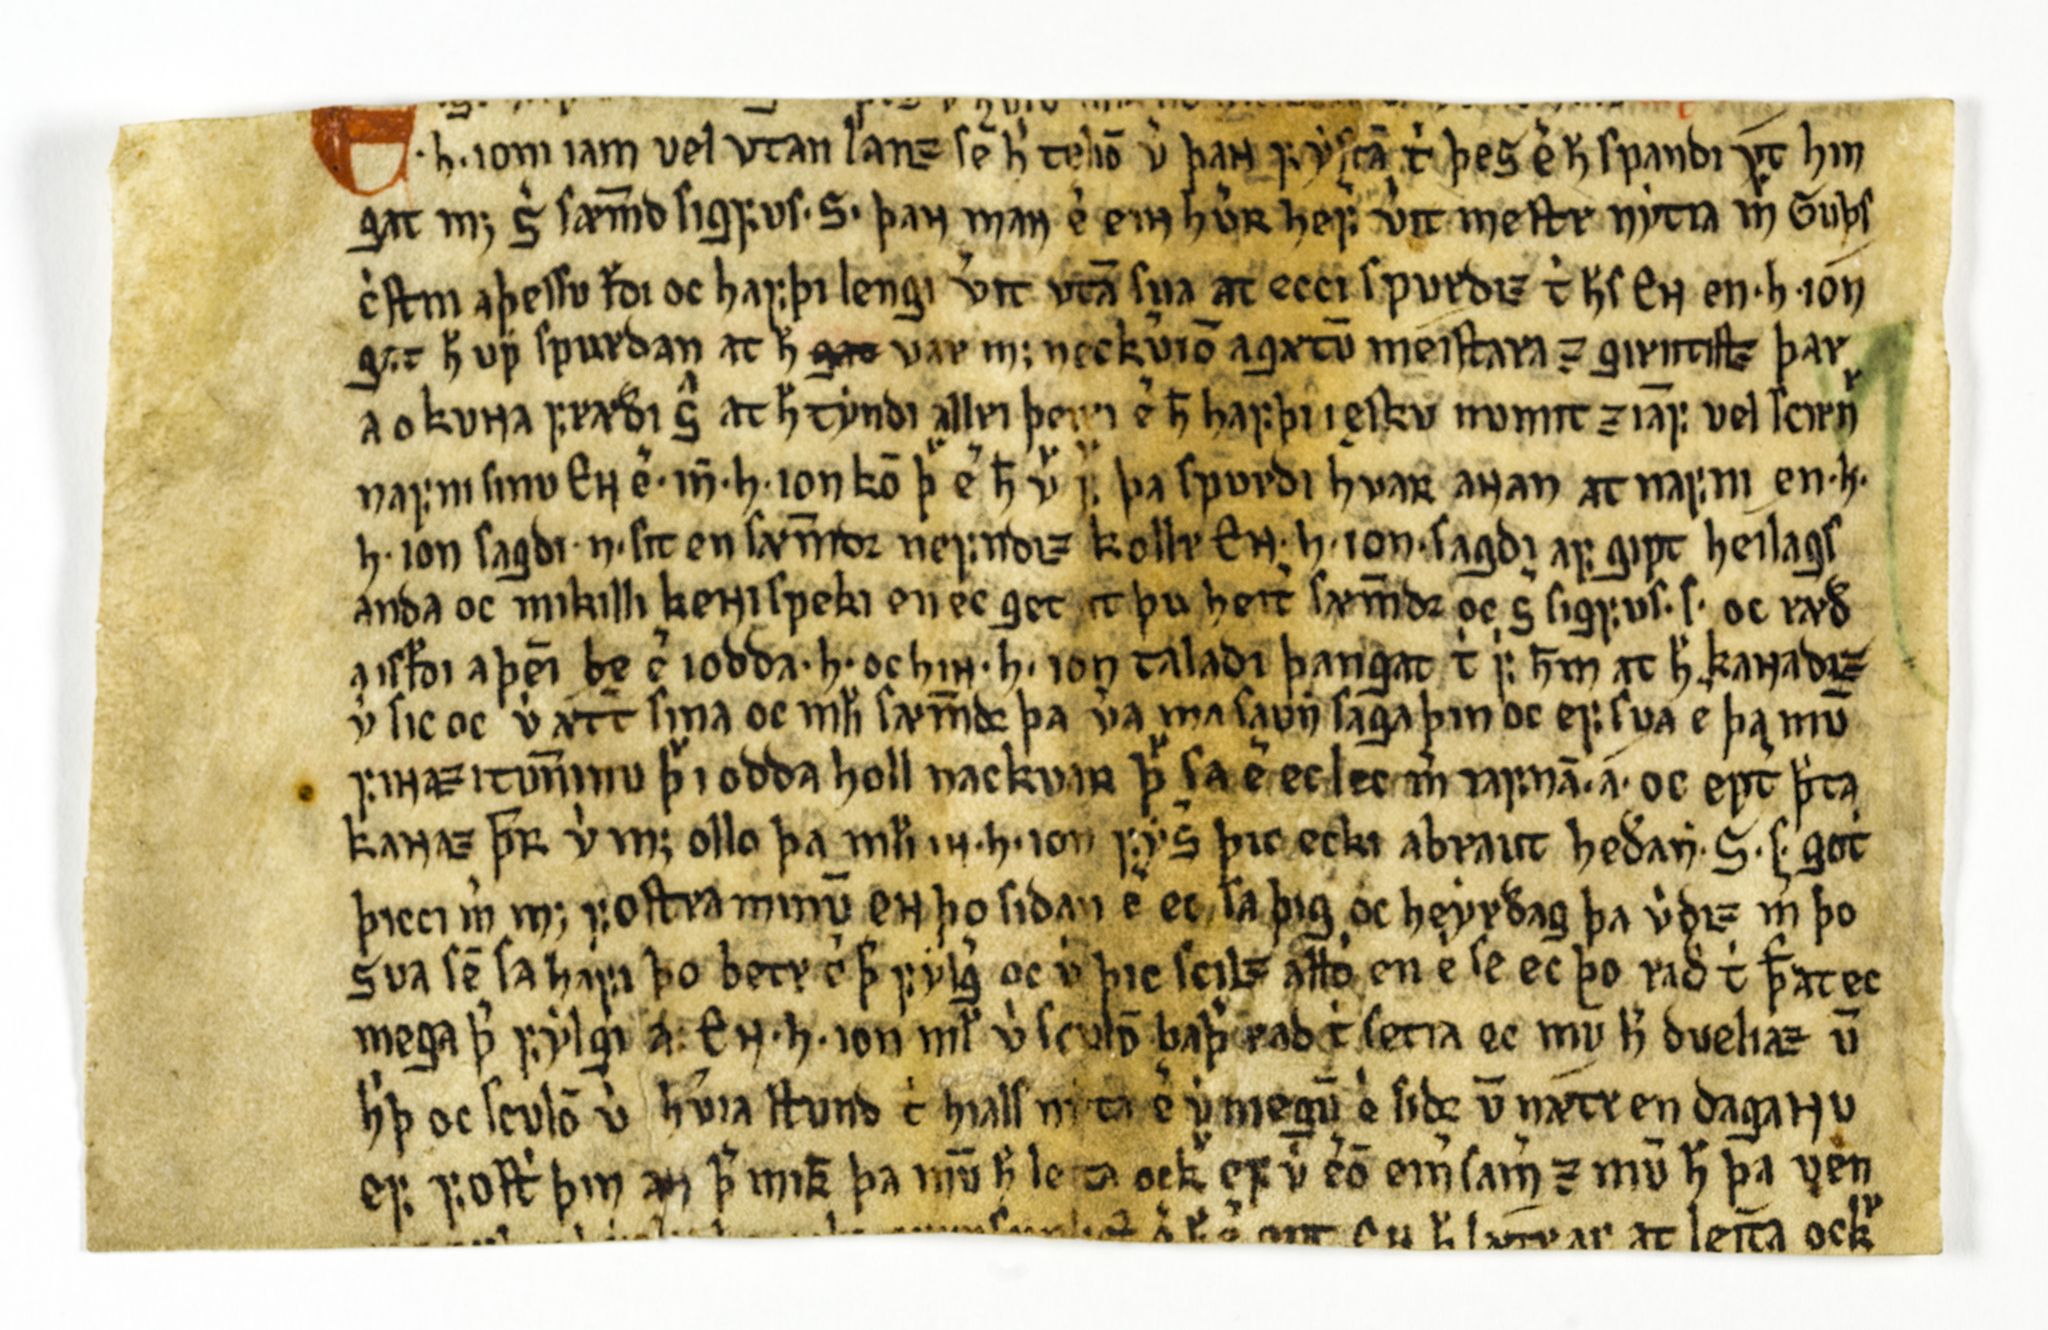 E·h·ioni iam vel vt̄an lanꝫ sē h̓ telıō v̓ þaɴ f̓ẏstā t̓ þeꞅ e̓ ħ spandi ẏt hin
gat mꝫ s̓ sæm̄d sigfvs·S· þaɴ maɴ e̓ eiɴ hv̓ʀ hef̓ v̓it mestr nẏtia m̓ Guþs
c̓stni aþessv l̓di oc hafþi lengi v̓it vtā sua at ecci spurdiꝫ t̓ ħs Eɴ en·h·ion
gat ħ up̓ spurdan at ħ var mꝫ neckv̓iō agætū meistara ꝫ girntistꝫ þar
a okuɴa fræði s̓ at ħ tẏndi allri þeiri e̓ ħ hafþi ięsku numit ꝫ iāf vel scirn̓
nafni sinu Eɴ e̓·m̄·h·ion kō þ̓ e̓ ħ v̓ f̓ þa spurdi huaʀ aɴan at nafni en·h·
h·ion sagdi·n·sit en sæm̄dꝛ nefndiꝫ kollr Eɴ·h·ion·sagdi af gipt heilags
anda oc mikilli keɴispeki en ec get at þu heit̓ sæm̄dꝛ oc s̓ sigfus·s· oc fæð
a isl̓di aþēi be c̓ iodda·h· oc hiɴ·h·ion taladi þangat t̓ f̓ h̄m at ħ kaɴadiꝫ
v̓ sic oc v̓ æt̄t sina oc ml̓i sæm̄dꝛ þa v̓a ma saun̄ saga þin oc ef sua e þa mū
fiɴaꝫ itun̄inu þ̓ i odda holl nackuaʀ þ̓ sa e̓ ec lec m̓ iafnā·a· oc ept̓ þ̓ta
kaɴaꝫ þ̄ʀ v̓ mꝫ ollo þa ml̓i iɴ·h·ion fẏs̓ þic ecki abraut heðan·S·s· got̓
þicci m̓ mꝫ fostra minū eɴ þo sidan e̓ ec sa þig oc heẏrðag þa v̓diꝫ m̓ þo
sua sē sa hafi þo betr e̓ þ̓ fẏlg̓ oc v̓ þic scilꝫ allō en e̓ sē ec þo rað t̓ þ̄ at ec
mega þ̓ fẏlgi a· Eɴ·h·ion ml̓ v̓ sculō baþ̓ rad t̓ setia ec mū ħ dueliaꝫ ū
h̓þ oc sculō v̓ hv̓ia stund t̓ hialſ nita e̓ v̓ megū e̓ sidꝛ ū nætr en dagaɴv
ef fost̓ þin aɴ þ̓ mik̄ þa mū ħ leita ock̓ ef v̓ e̓ō em̓ sam̓ ꝫ mū ħ þa ven
Eɴ ħ lætr af at leita ock̓